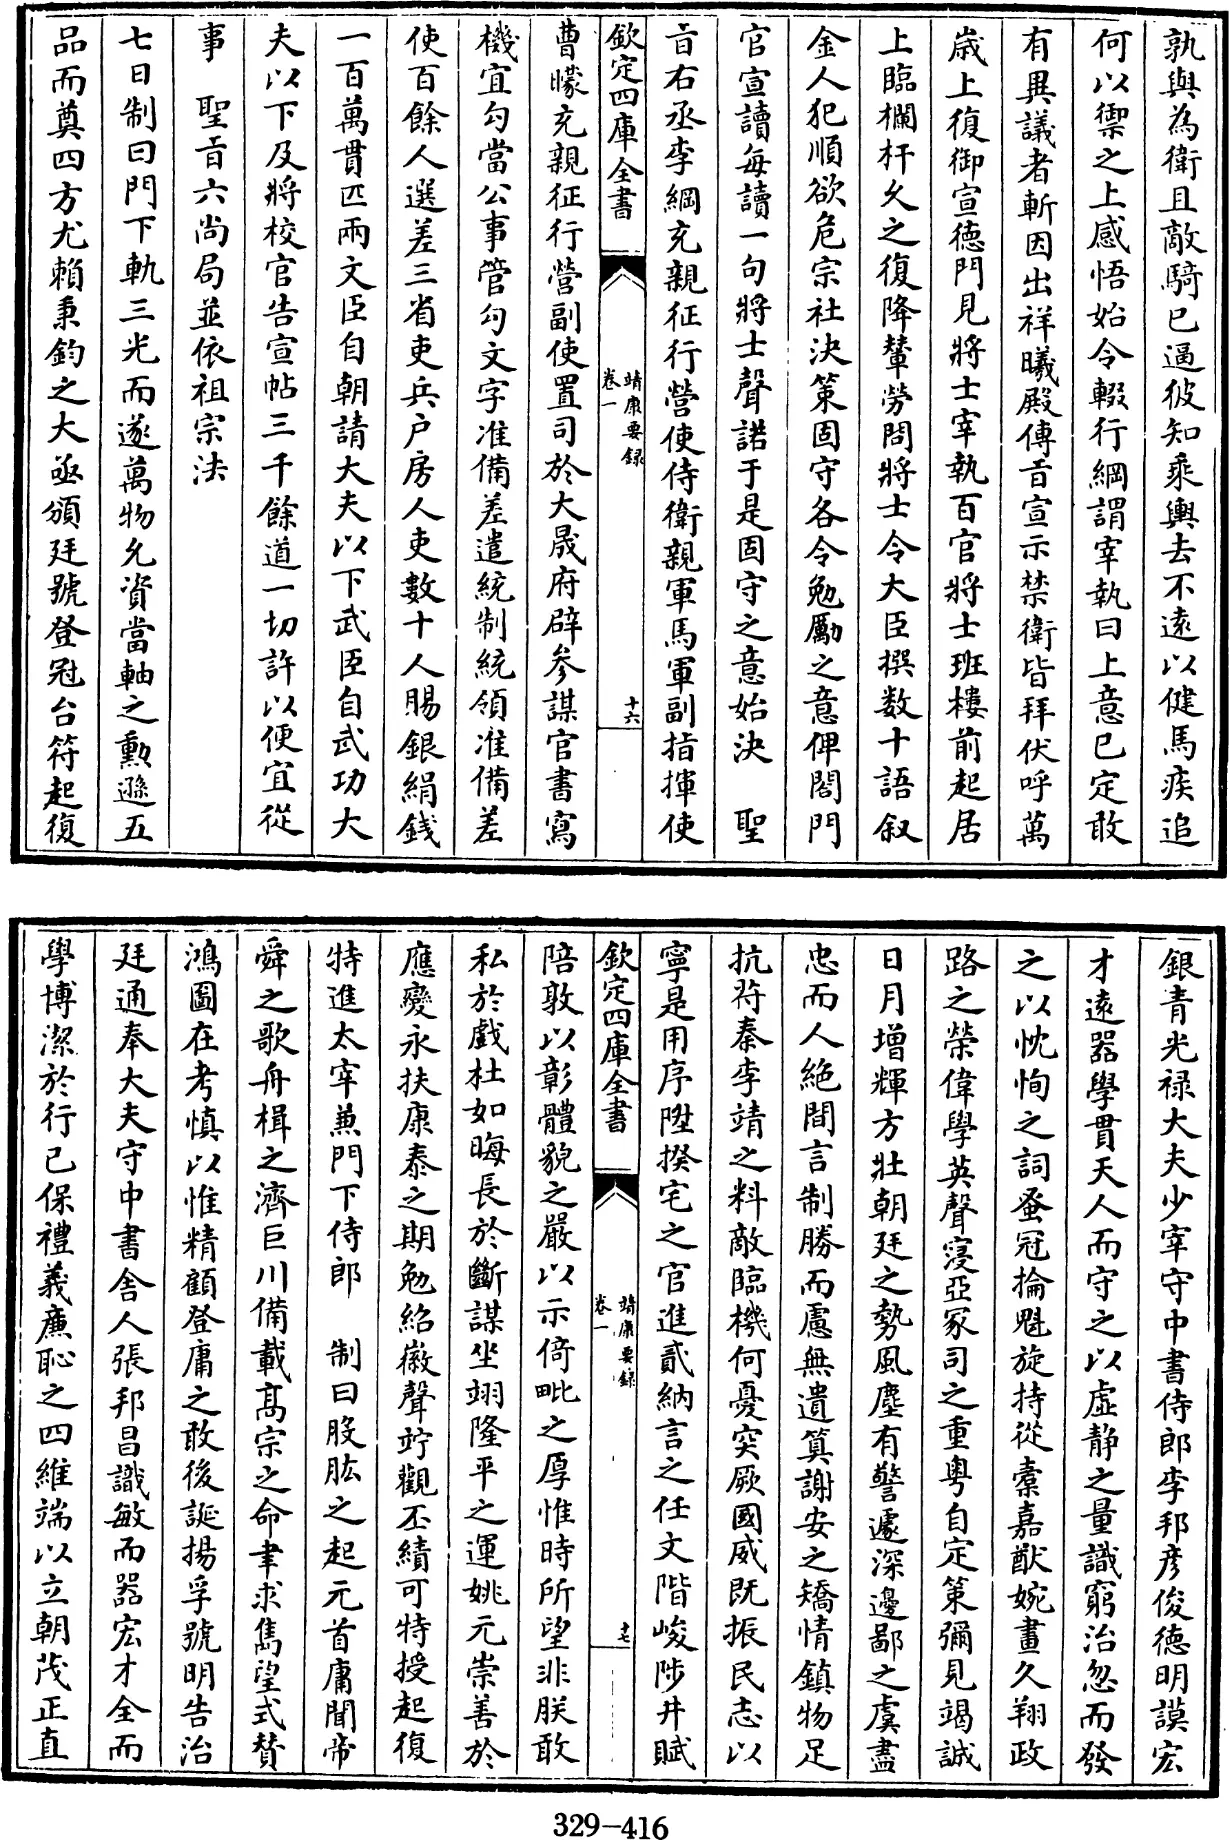 孰與為衛且敵騎已逼彼知乘輿去不遠以健馬疾追
何以禦之上感悟始令輟行綱謂宰執曰上意已定敢
有異議者斬因出祥曦殿傳㫖宣示禁衛皆拜伏呼萬
嵗上復御宣德門見將士宰執百官將士班樓前起居
上臨欄杆久之復降輦勞問將士令大臣撰數十語叙
金人犯順欲危宗社決策固守各令勉勵之意俾閤門
官宣讀每讀一句將士聲諾于是固守之意始決　聖
㫖右丞李綱充親征行營使侍衛親軍馬軍副指揮使
欽定四庫全書
靖康要録
卷一
十六
曹曚充親征行營副使置司於大晟府辟參謀官書寫
機宜勾當公事管勾文字准備差遣統制統領准備差
使百餘人選差三省吏兵户房人吏數十人賜銀絹錢
一百萬貫匹兩文臣自朝請大夫以下武臣自武功大
夫以下及將校官告宣帖三千餘道一切許以便宜從
事　聖㫖六尚局並依祖宗法
七日制曰門下軌三光而遂萬物允資當軸之勲遜五
品而奠四方尤賴秉鈞之大亟頒廷號登冠台符起復
銀青光禄大夫少宰守中書侍郎李邦彦俊德明謨宏
才遠器學貫天人而守之以虚静之量識窮治忽而發
之以忱恂之詞蚤冠掄魁旋持從橐嘉猷婉畫久翔政
路之榮偉學英聲寖亞冢司之重粤自定策彌見竭誠
日月增輝方壯朝廷之勢風塵有警遽深邊鄙之虞盡
忠而人絶間言制勝而慮無遺算謝安之矯情鎮物足
抗苻秦李靖之料敵臨機何憂突厥國威既振民志以
寧是用序陞揆宅之官進貳納言之任文階峻陟井賦
欽定四庫全書
靖康要録
卷一
十七
陪敦以彰體貌之嚴以示倚毗之厚惟時所望非朕敢
私於戯杜如晦長於斷謀坐翊隆平之運姚元崇善於
應變永扶康泰之期勉紹徽聲竚觀丕績可特授起復
特進太宰兼門下侍郎　制曰股肱之起元首庸聞帝
舜之歌舟楫之濟巨川備載髙宗之命聿求雋望式賛
鴻圖在考慎以惟精顧登庸之敢後誕揚孚號明告治
廷通奉大夫守中書舍人張邦昌識敏而器宏才全而
學博潔於行己保禮義亷恥之四維端以立朝茂正直
329-416